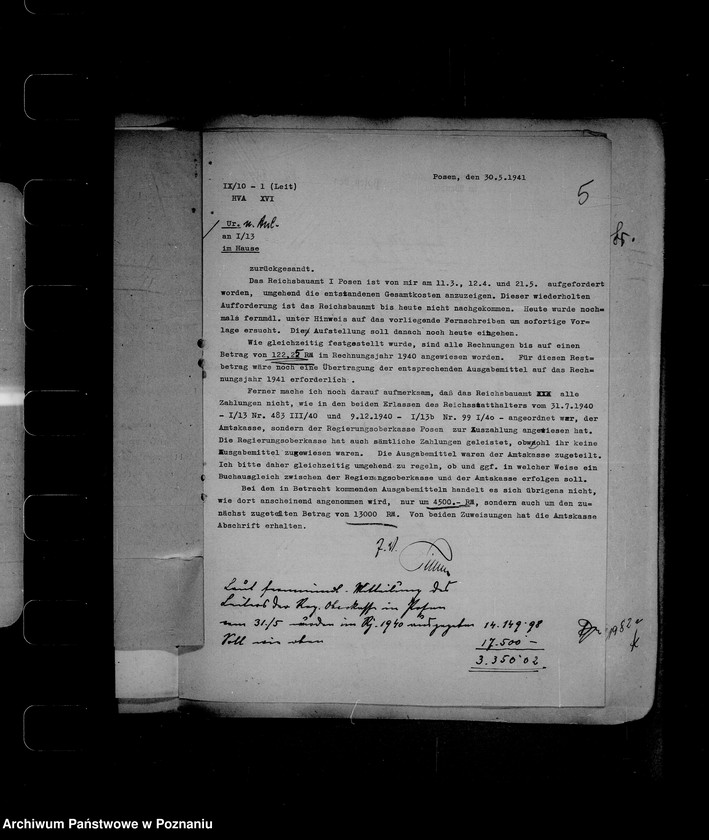 Posen, den 30.5.1941
5
IX/10 - 1 (Leit)
HVA XVI
Ur. u. Anl.
an I/13
im Hause
zurückgesandt.
Das Reichsbauamt I Posen ist von mir am 11.3., 12.4. und 21.5. aufgefordert
worden, umgehend die entstandenen Gesamtkosten anzuzeigen. Dieser wiederholten
Aufforderung ist das Reichsbauamt bis heute nicht nachgekommen. Heute wurde noch=
mals fernmdl. unter Hinweis auf das vorliegende Fernschreiben um sofortige Vor-
lage ersucht. Die Aufstellung soll danach noch heute eingehen.
Wie gleichzeitig festgestellt wurde, sind alle Rechnungen bis auf einen
Betrag von 122.25 RM im Rechnungsjahr 1940 angewiesen worden. Für diesen Rest-
betrag wäre noch eine Übertragung der entsprechenden Ausgabemittel auf das Rech-
nungsjahr 1941 erforderlich.
Ferner mache ich noch darauf aufmerksam, daß das Reichsbauamt XXX alle
Zahlungen nicht, wie in den beiden Erlassen des Reichsstatthalters vom 31.7.1940
- I/13 Nr. 483 III/40 und 9.12.1940 - I/13b Nr. 99 I/40 - angeordnet war, der
Amtskasse, sondern der Regierungsoberkasse Posen zur Auszahlung angewiesen hat.
Die Regierungsoberkasse hat auch sämtliche Zahlungen geleistet, obwohl ihr keine
Ausgabemittel zugewiesen waren. Die Ausgabemittel waren der Amtskasse zugeteilt.
Ich bitte daher gleichzeitig umgehend zu regeln, ob und ggf. in welcher Weise ein
Buchausgleich zwischen der Regierungsoberkasse und der Amtskasse erfolgen soll.
Bei den in Betracht kommenden Ausgabemitteln handelt es sich übrigens nicht,
wie dort anscheinend angenommen wird, nur um 4500.- RM, sondern auch um den zu-
nächst zugeteilten Betrag von 13000 RM. Von beiden Zuweisungen hat die Amtskasse
Abschrift erhalten.
Laut fernmündl. Mitteilung des
Leiters der Reg. Oberkasse in Posen
vom 31./5 wurden im Rj. 1940 ausgegeben 14.149.98
Soll wie oben 17.500 —
3.350.02
Archiwum Państwowe w Poznaniu